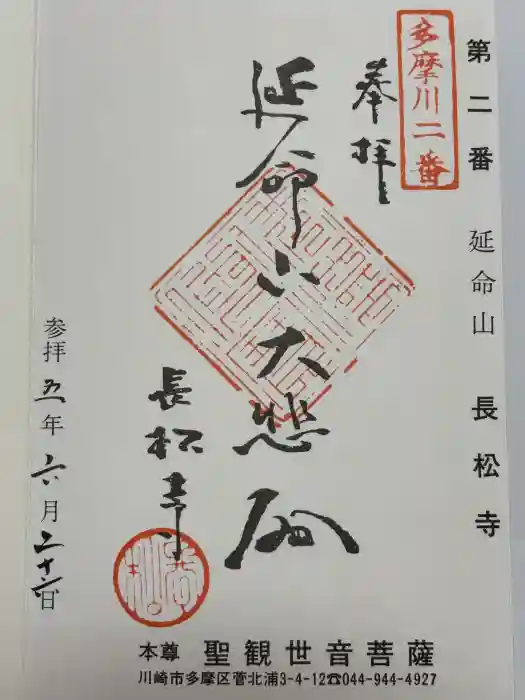 第二番 延命山 長松寺
多摩川二番
奉拝
延命山大悲殿
長松寺
参拝五年六月二十六日
本尊 聖観世音菩薩
川崎市多摩区菅北浦3-4-12☎044-944-4927